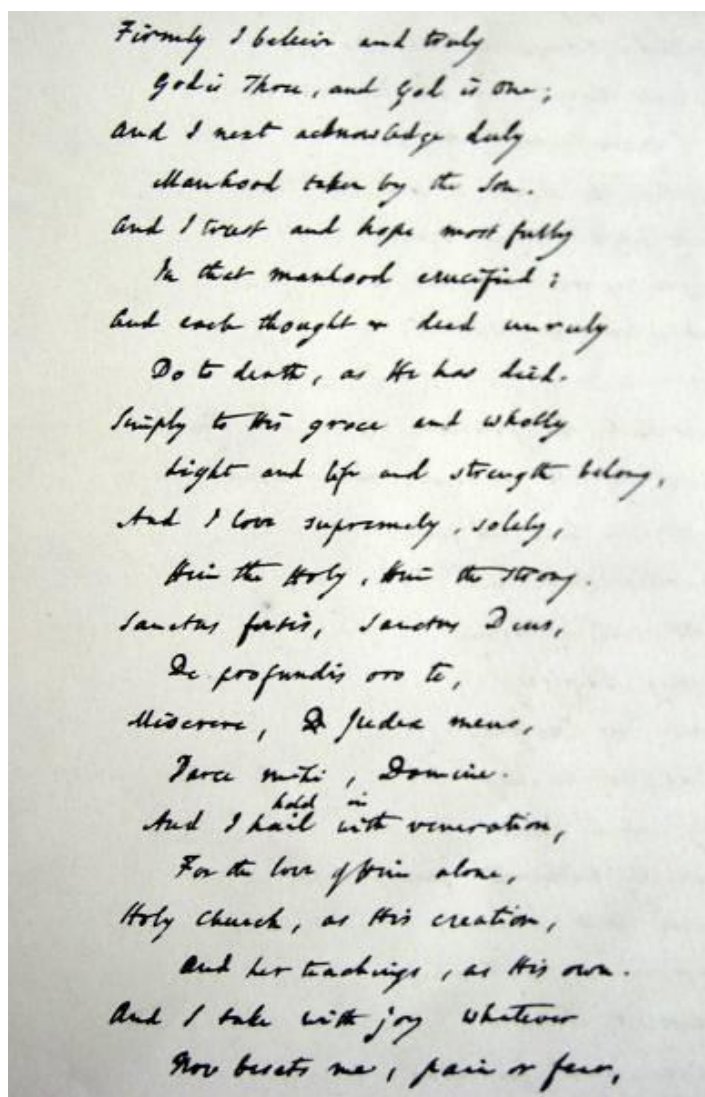 Firmly I believe and truly
God is Three, and God is One;
And I next acknowledge duly
Manhood taken by the Son.
And I trust and hope most fully
In that manhood crucified;
And each thought & deed unruly
Do to death, as He has died.
Simply to His grace and wholly
Light and life and strength belong,
And I love supremely, solely,
Him the Holy, Him the Strong.
Sanctus fortis, Sanctus Deus,
De profundis oro te,
Miserere, Judex meus,
Parce mihi, Domine.
hold in
And I hail with veneration,
For the love of Him alone,
Holy Church, as His creation,
And her teachings, as His own.
And I take with joy whatever
Now besets me, pain or fear,